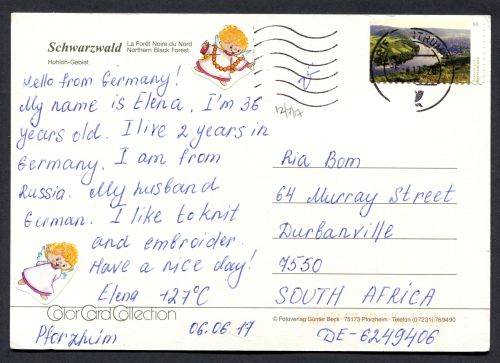 Schwarzwald
La Forêt Noire du Nord
Northern Black Forest
Hohloh-Gebiet
Hello from Germany!
My name is Elena, I'm 36
years old. I live 2 years in
Germany. I am from
Russia. My husband
German. I like to knit
and embroider.
Have a nice day!
Elena +27°C
ColorCardCollection
Pforzheim 06.06.17
12/7/17
Ria Bom
64 Murray Street
Durbanville
7550
SOUTH AFRICA
© Fotoverlag Günter Beck · 75173 Pforzheim · Telefon (07231) 76 94 90
DE-6249406